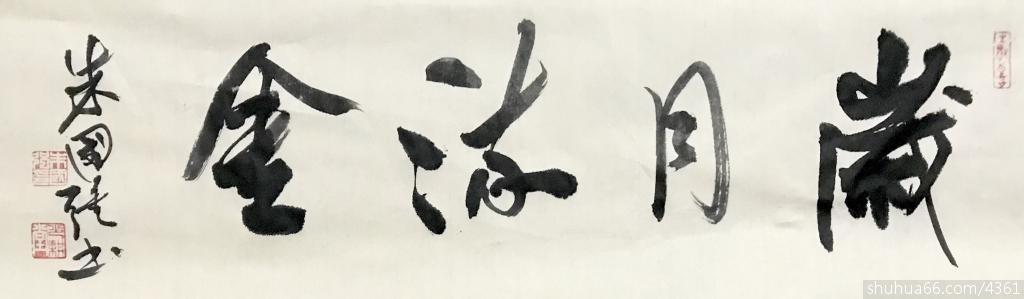 歲月流金
朱國強书
shuhua66.com/4361